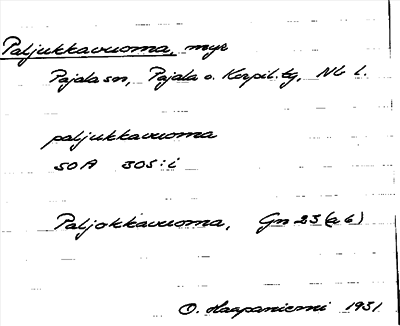 Paljukkavuoma, myr
Pajala sn, Pajala o. Korpil. tg, Nb l.
paljukkavuoma
SOA 305:i
Paljokkavuoma, Gn 23 (a 6)
O. Haapaniemi 1931